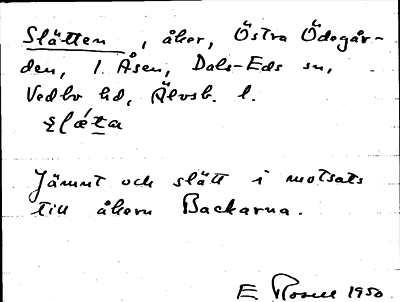 Slätten, åker, Östra Ödegår-
den, l. Åsen, Dals-Eds sn,
Vedbo hd, Älvsb. l.
Jämnt och slätt i motsats
till åkern Backarna.
E 1950